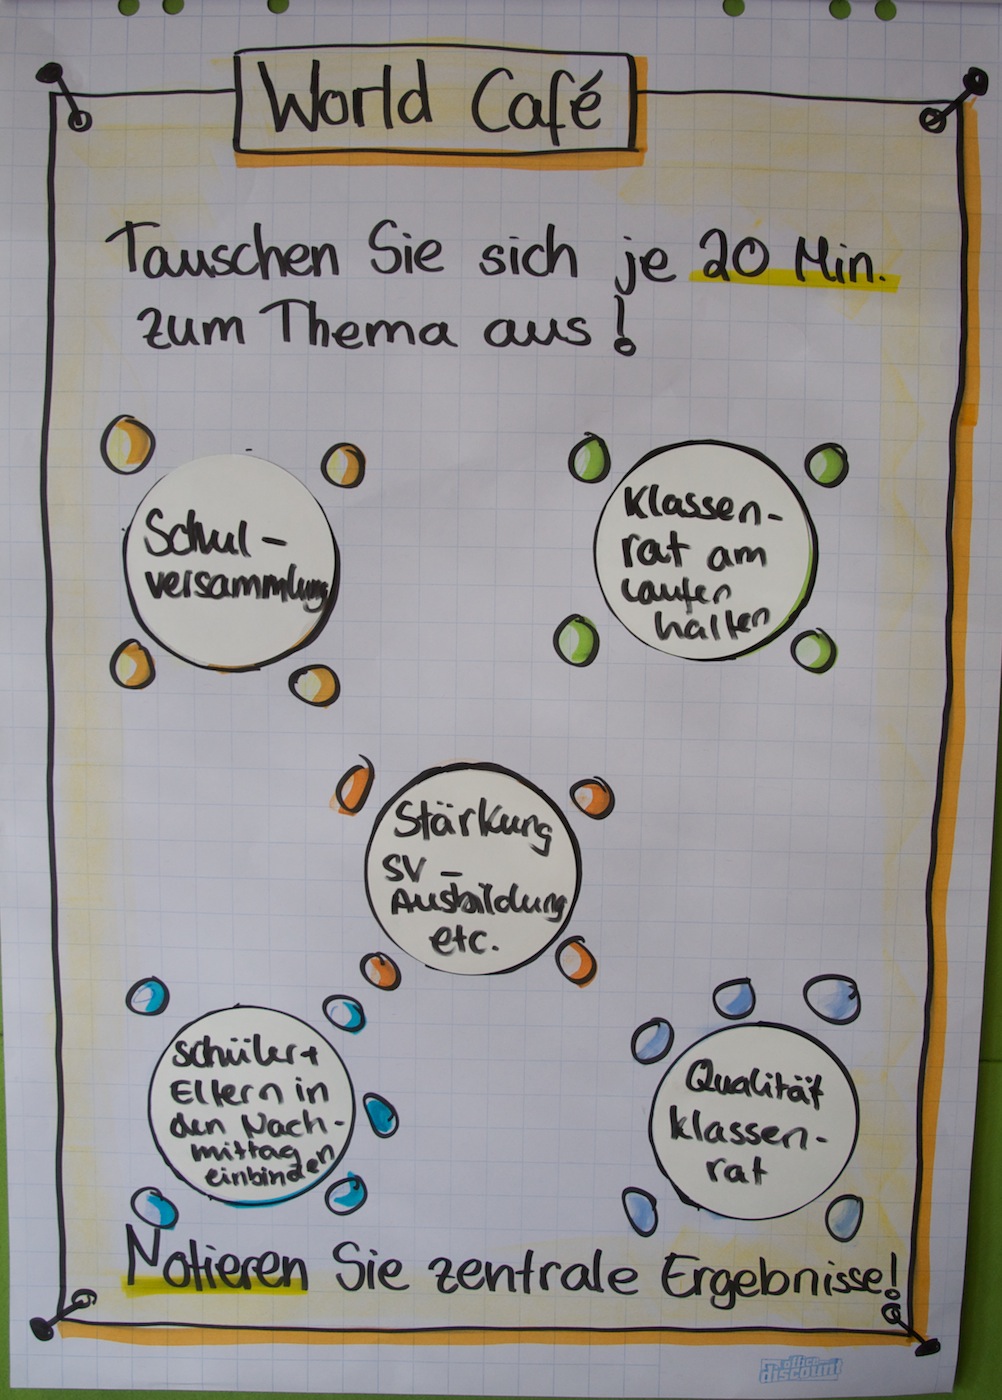 World Café
Tauschen Sie sich je 20 Min.
zum Thema aus!
Schul-
versammlung
Klassen-
rat am
laufen
halten
Stärkung
SV-
Ausbildung
etc.
Schüler+
Eltern in
den Nach-
mittag
einbinden
Qualität
Klassen-
rat
Notieren Sie zentrale Ergebnisse!
office
discount